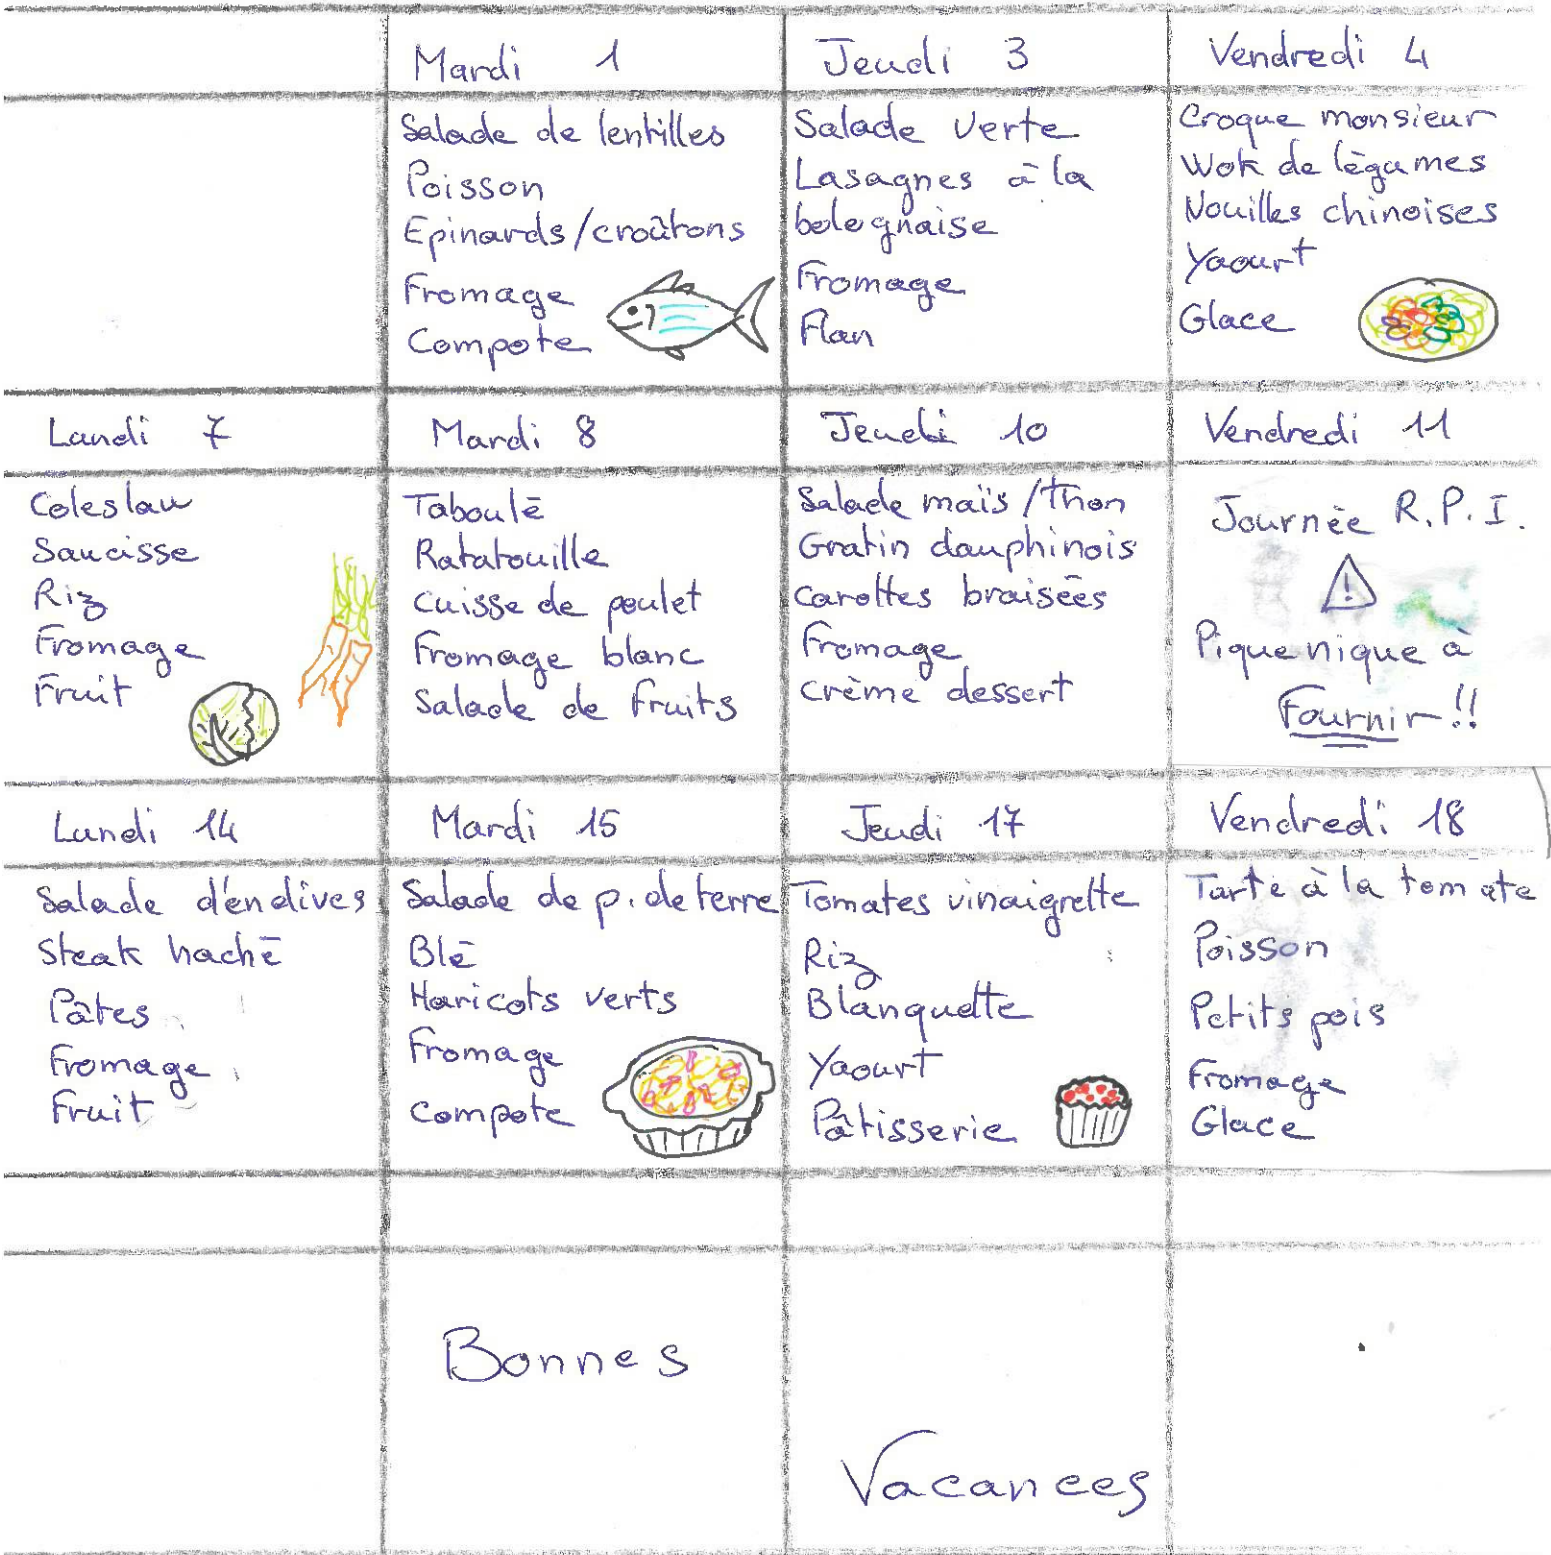 Mardi 1
Jeudi 3
Vendredi 4
Salade de lentilles
Poisson
Epinards/croûtons
Fromage
Compote
Salade verte
Lasagnes à la
bolognaise
Fromage
Flan
Croque monsieur
Wok de légumes
Nouilles chinoises
Yaourt
Glace
Lundi 7
Mardi 8
Jeudi 10
Vendredi 11
Coleslaw
Saucisse
Riz
Fromage
Fruit
Taboulé
Ratatouille
Cuisse de poulet
Fromage blanc
Salade de fruits
Salade maïs/thon
Gratin dauphinois
carottes braisées
Fromage
Crème dessert
Journée R.P.I.
!
Pique nique à
Fournir!!
Lundi 14
Mardi 15
Jeudi 17
Vendredi 18
Salade d'endives
Steak haché
Pâtes
Fromage
Fruit
Salade de p. de terre
Blé
Haricots verts
Fromage
compote
Tomates vinaigrette
Riz
Blanquette
Yaourt
Pâtisserie
Tarte à la tomate
Poisson
Petits pois
Fromage
Glace
Bonnes
Vacances